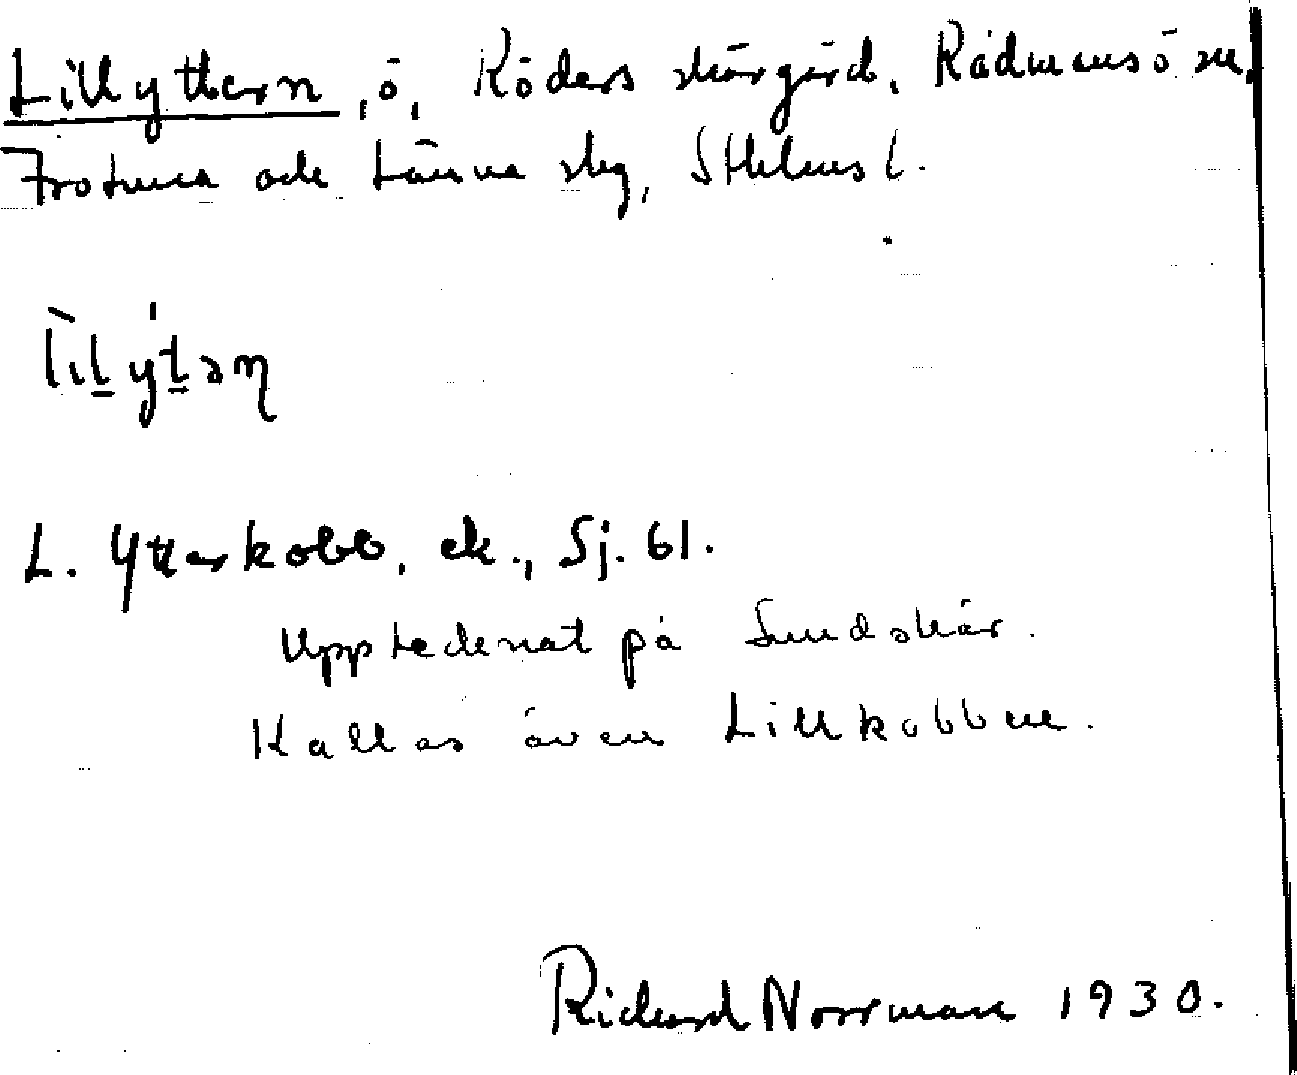 Lillyttern, ö, Röders skärgård, Rådmansö sn,
Frötuna och Länna skg, Sthlms l.
L. Ytterkobb, ek., Sj. 61.
Upptecknat på Sundskär.
Kallas även Lillkobben.
Richard Norrman 1930.